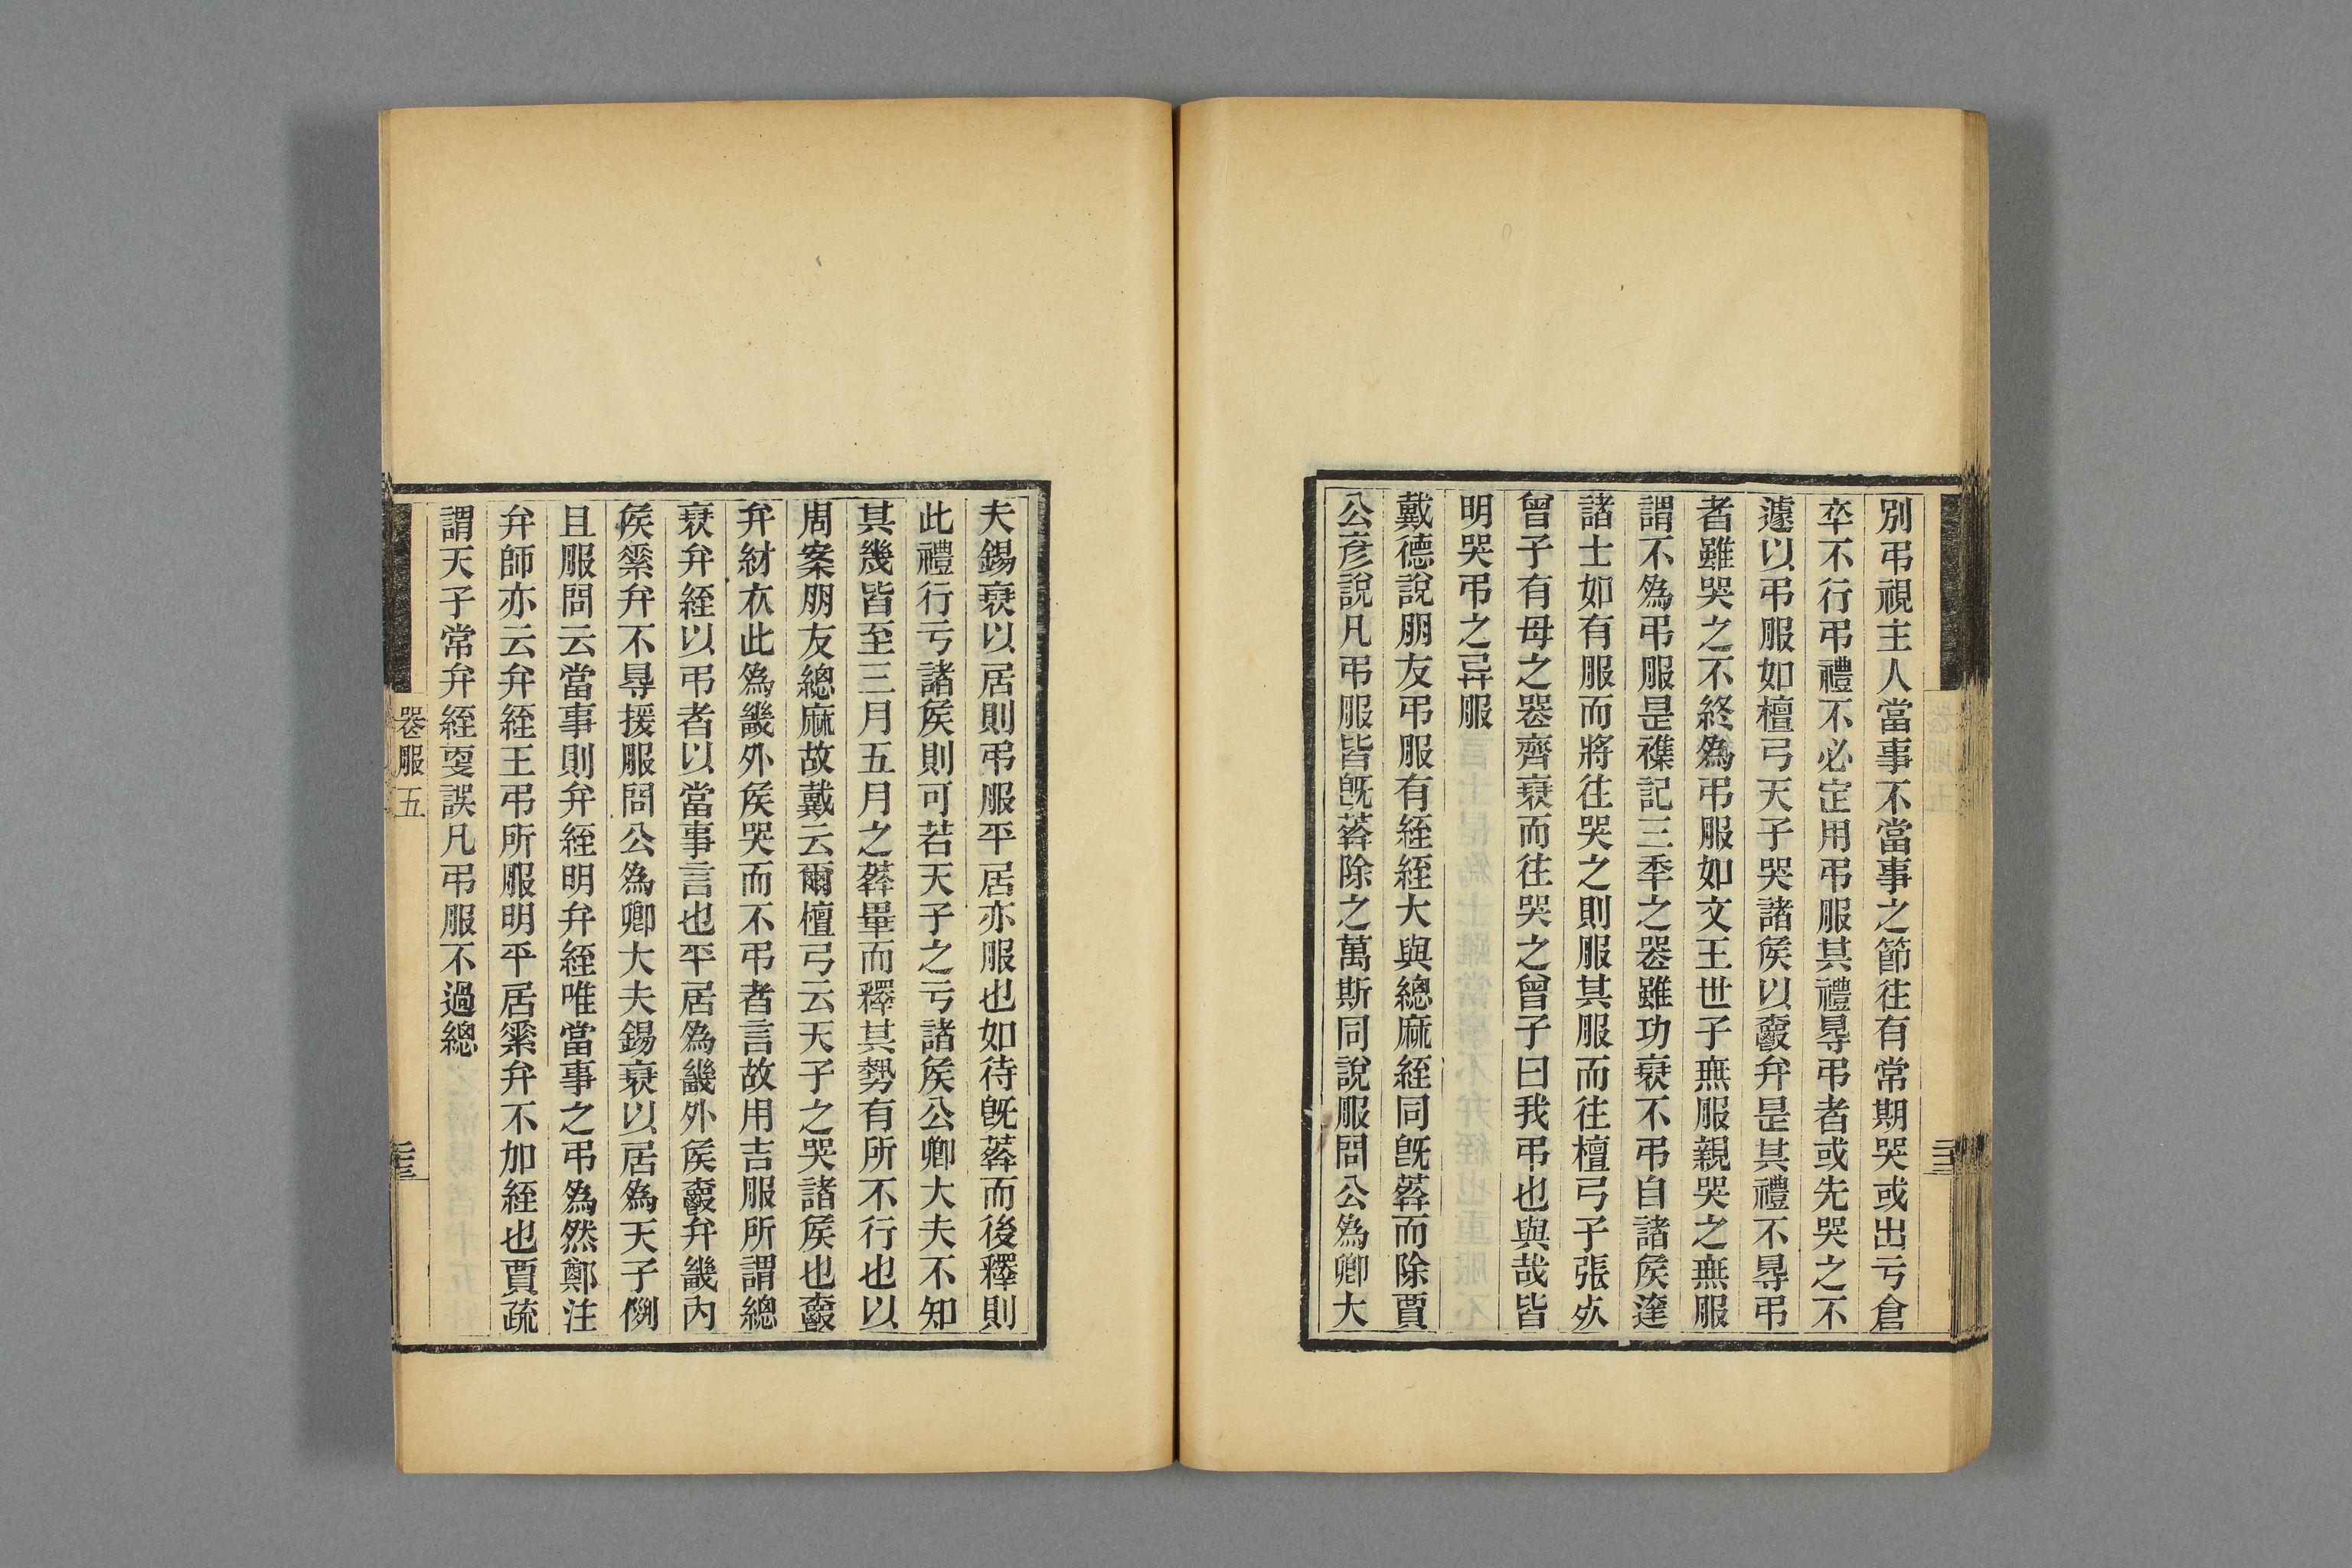 別弔視主人當事不當事之節往有常期哭或出亏倉
卒不行弔禮不必定用弔服其禮㝵弔者或先哭之不
遽以弔服如檀弓天子哭諸矦以爵弁是其禮不㝵弔
者雖哭之不終為弔服如文王世子無服親哭之無服
謂不為弔服是襍記三秊之喪雖功衰不弔自諸矦達
諸士如有服而將往哭之則服其服而往檀弓子張𣦸
曾子有母之喪齊衰而往哭之曾子曰我弔也與哉皆
明哭弔之异服
戴德說朋友弔服有絰絰大與緦麻絰同旣葬而除賈
公彥說凡弔服皆旣葬除之萬斯同說服問公為卿大
夫錫衰以居則弔服平居亦服也如待旣葬而後釋則
此禮行亏諸矦則可若天子之亏諸矦公卿大夫不知
其幾皆至三月五月之葬畢而釋其勢有所不行也以
周案朋友緦麻故戴云爾檀弓云天子之哭諸矦也爵
弁紂衣此為畿外矦哭而不弔者言故用吉服所謂緦
衰弁絰以弔者以當事言也平居為畿外矦爵弁畿內
矦素弁不㝵援服問公為卿大夫錫衰以居為天子例
且服問云當事則弁絰明弁絰唯當事之弔為然鄭注
弁師亦云弁絰王弔所服明平居素弁不加絰也賈疏
謂天子常弁絰㪅誤凡弔服不過緦
喪服五
二十三